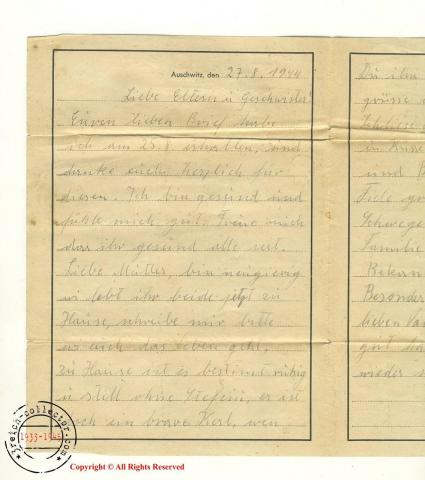 Auschwitz, den 27.8.1944
Liebe Eltern u Geschwister!
Euren lieben Brief habe
ich am 23.8. erhalten, und
danke euch herzlich für
diesen. Ich bin gesund und
fühle mich gut. Freue mich
das ihr gesund alle seit.
Liebe Mutter, bin neugierig
wi lebt ihr beide jetzt zu
Hause, schreibe mir bitte
wi euch das Leben geht,
zu Hause ist es bestimt ruhig
u still ohne Stefciu, er ist
doch ein brave Kerl, wen
Du ihm
grüsse
schliese
und
Viele
Schwege
Familie
Bekan
Besonder
lieben Va
gut
wieder
jreich-collector.com
1933-1945
Copyright © All Rights Reserved